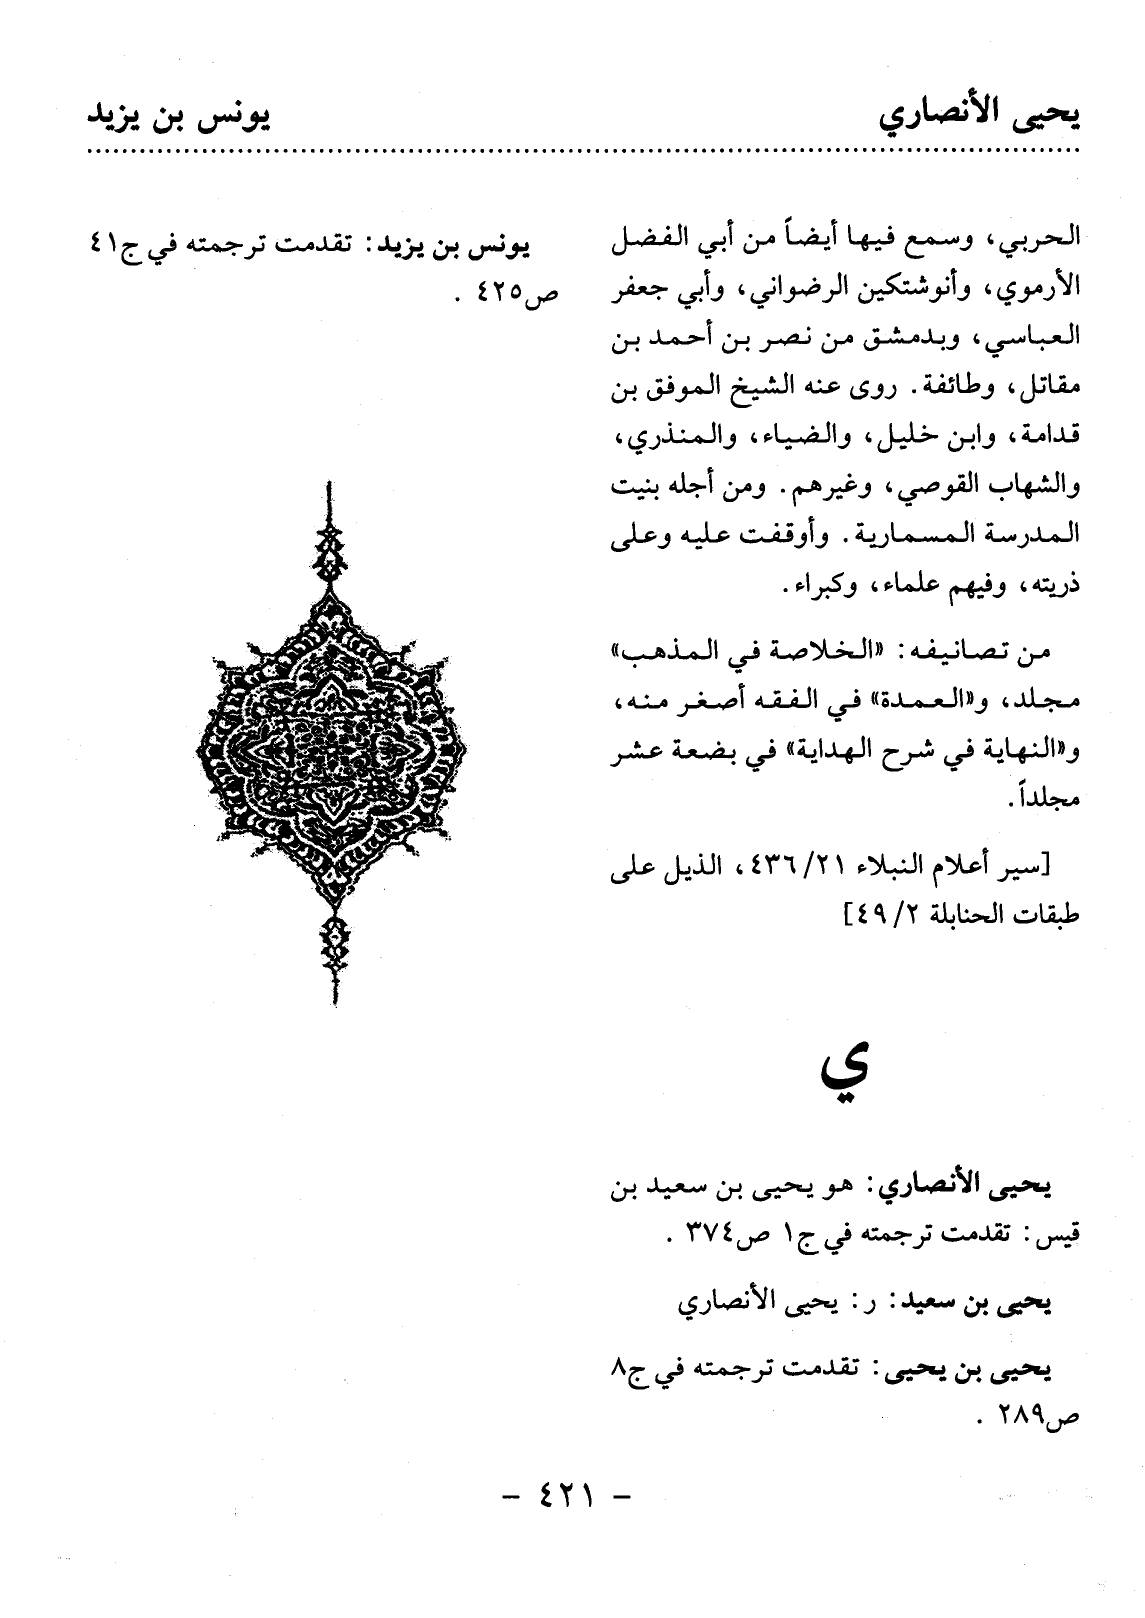 يحيى الأنصاري
يونس بن يزيد
الحربي، وسمع فيها أيضاً من أبي الفضل
الأرموي، وأنوشتكين الرضواني، وأبي جعفر
العباسي، وبدمشق من نصر بن أحمد بن
مقاتل، وطائفة. روى عنه الشيخ الموفق بن
قدامة، وابن خليل، والضياء، والمنذري،
والشهاب القوصي، وغيرهم. ومن أجله بنيت
المدرسة المسمارية. وأوقفت عليه وعلى
ذريته، وفيهم علماء، وكبراء.
من تصانيفه: «الخلاصة في المذهب»
مجلد، و«العمدة» في الفقه أصغر منه،
و«النهاية في شرح الهداية» في بضعة عشر
مجلداً.
[سير أعلام النبلاء ٢١/ ٤٣٦، الذيل على
طبقات الحنابلة ٢/ ٤٩]
ي
يحيى الأنصاري: هو يحيى بن سعيد بن
قيس: تقدمت ترجمته في ج١ ص٣٧٤ .
يحيى بن سعيد: ر: يحيى الأنصاري
يحيى بن يحيى: تقدمت ترجمته في ج٨
ص٢٨٩ .
يونس بن يزيد: تقدمت ترجمته في ج٤١
ص٤٢٥ .
– ٤٢١ –